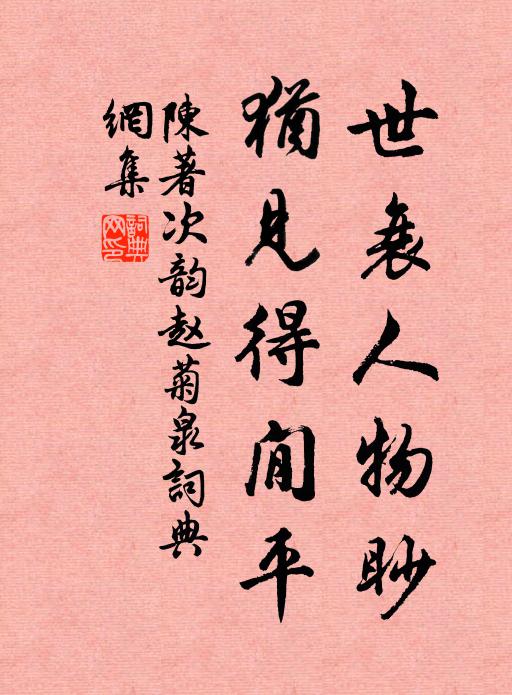 世衰人物眇
犹見得閒平
陳著次韵赵菊泉詞典
網集
詞典网印